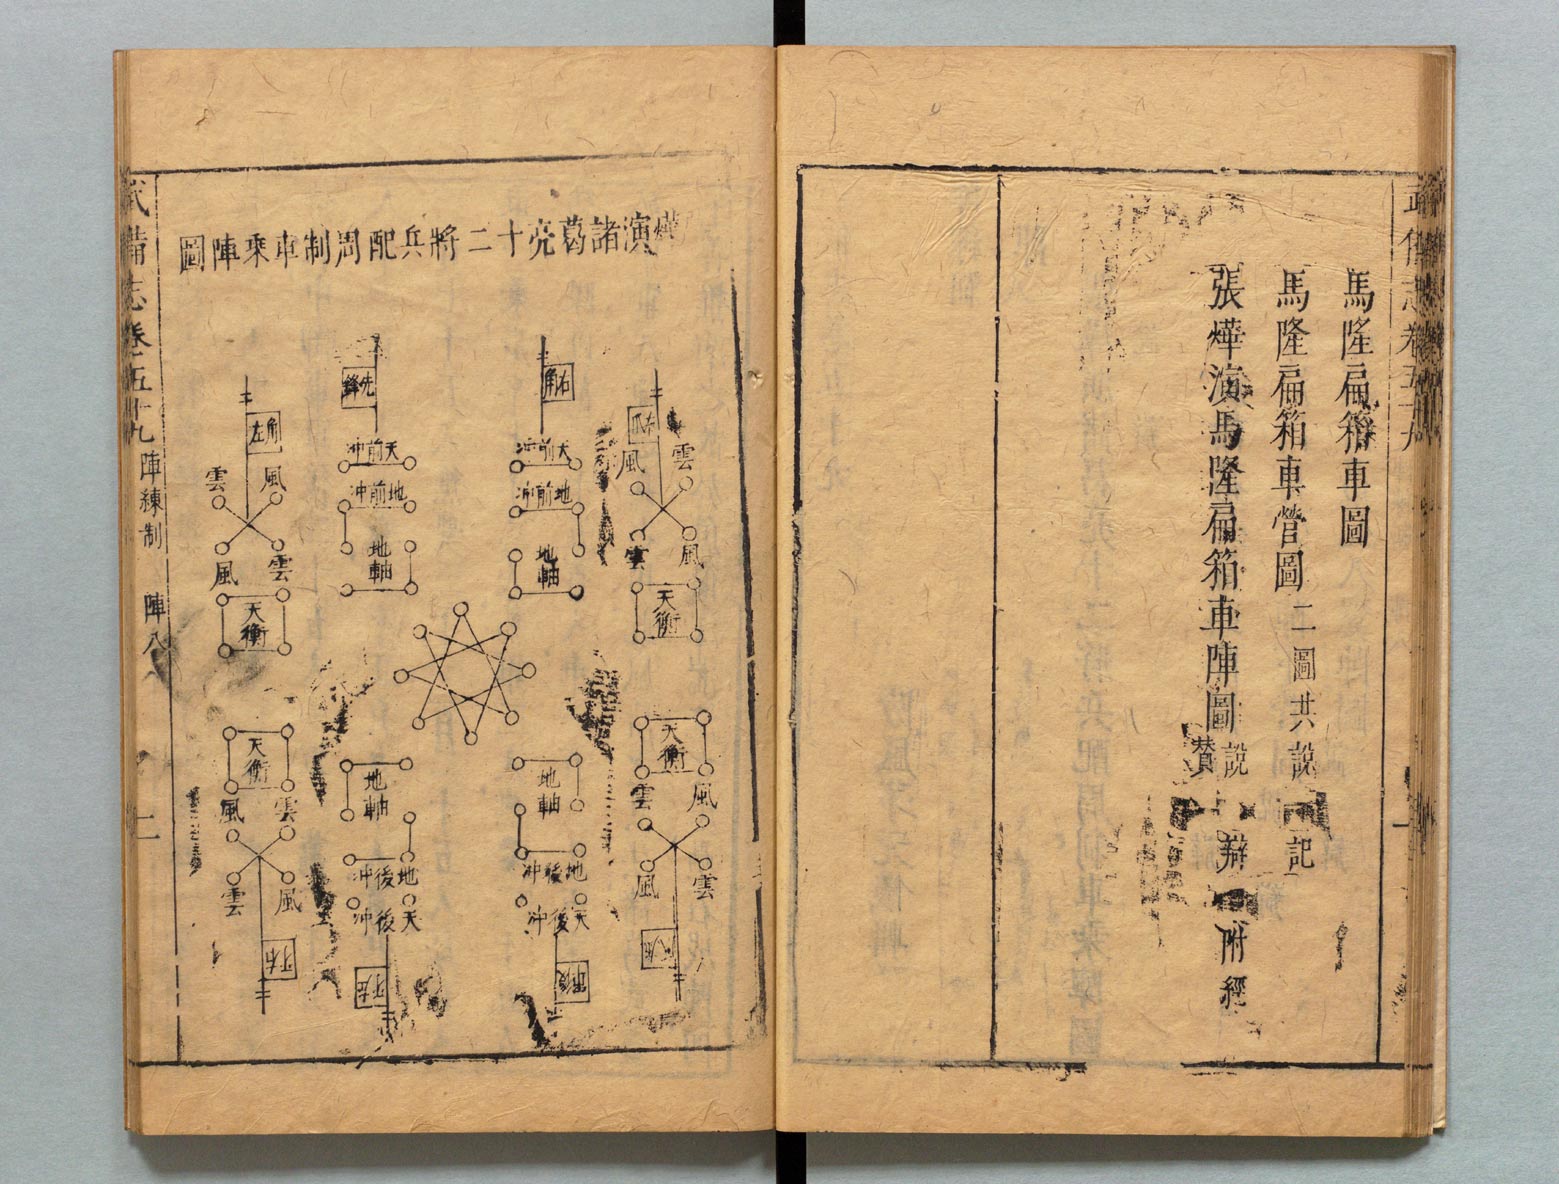 武備志卷五十九
馬隆扁箱車圖
馬隆扁箱車營圖 二圖共說 記
張燁演馬隆扁箱車陣圖 說 辯 附經
贊
燁演諸葛亮十二將兵配周制車乘陣圖
右角
先鋒
左角
雲 風
風 雲
天衡
天前冲
地前冲
地軸
天前冲
地前冲
地軸
雲 風
風 雲
天衡
天衡
雲 風
風 雲
地軸
地後冲
天後冲
地軸
地後冲
天後冲
天衡
雲 風
風 雲
武備志卷五十九 陣練制 陣八